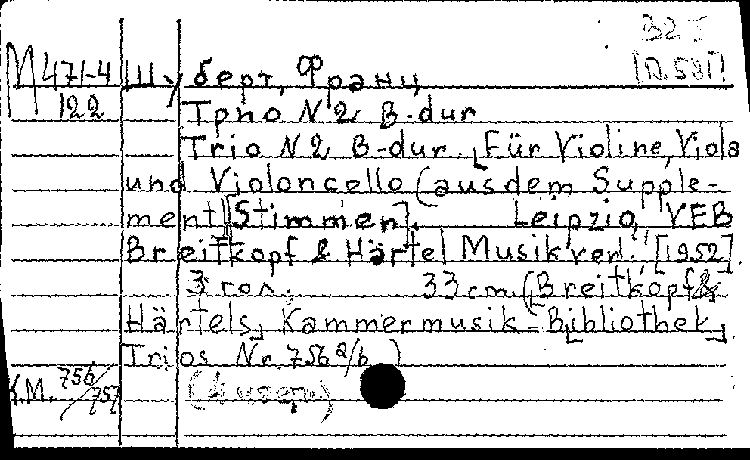 В2
[D.581]
М 471-4 Шуберт, Франц
122 Трио N 2 B-dur
Trio N 2 B-dur. Für Violine, Viola
und Violoncello (aus dem Supple-
ment) [Stimmen]. Leipzig, VEB
Breitkopf & Härtel Musikverl., [1952].
3 гол. 33 cm (Breitkopf &
Härtels Kammermusik-Bibliothek
Trios Nr. 756 a/b )
К.М. 756/757